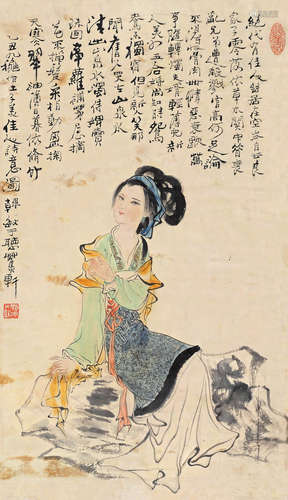 絕代有佳人幽居在空谷自云良
家子零落依草木關中昔喪
亂兄弟遭殺戮官高何足論
不得收骨肉世情惡衰歇萬
事隨轉燭夫婿輕薄兒新
人美如玉合昏尚知時鴛
鴦不獨宿但見新人笑那
聞舊人哭在山泉水
清出山泉水濁侍婢賣珠
回牽蘿補茅屋摘
花不插髮采柏動盈掬
天寒翠袖薄日暮倚修竹
乙丑穐子美佳人詩意圖韓敏于聽軒